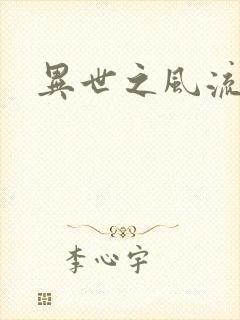 異世之風流
李心宇